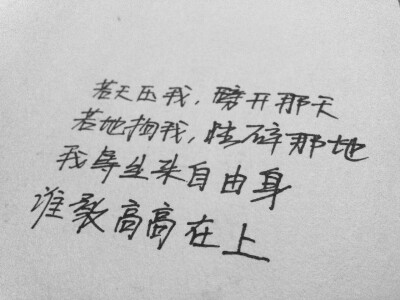 若天压我，劈开那天
若地拘我，碎那地
我等生来自由身
谁敢高高在上